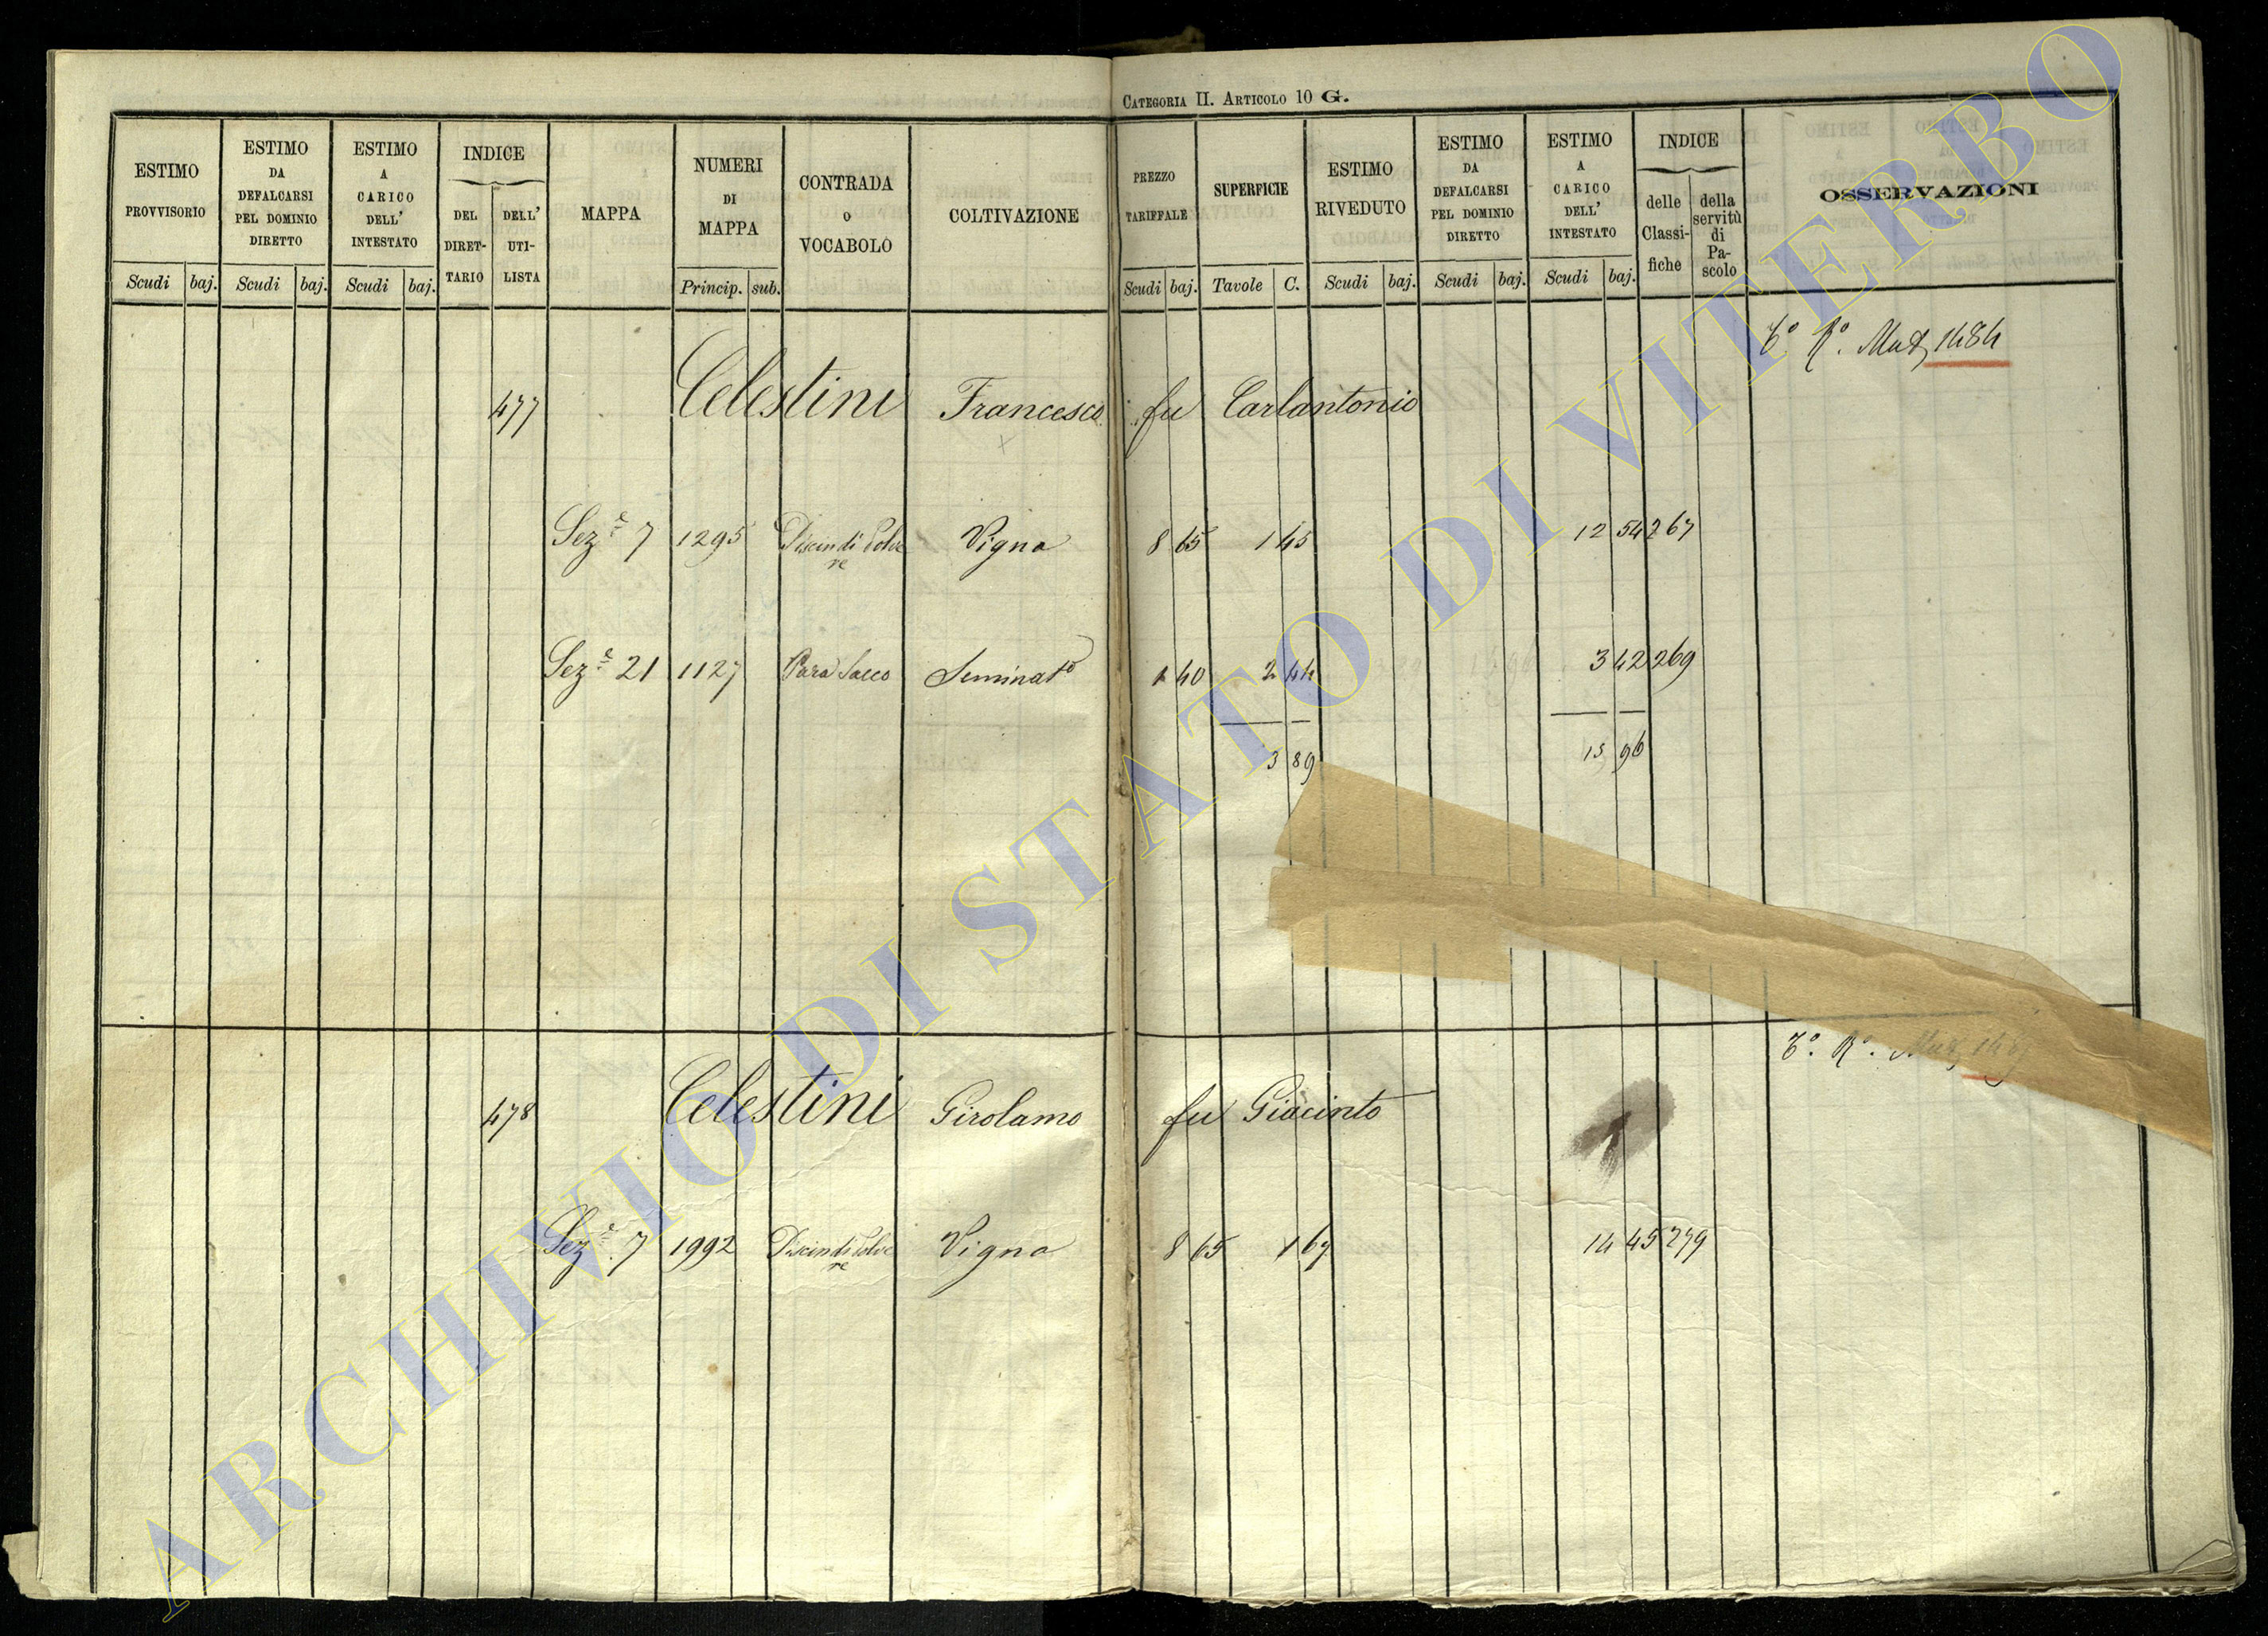 CATEGORIA II. ARTICOLO 10 G.
ESTIMO PROVVISORIO Scudi baj.
ESTIMO DA DEFALCARSI PEL DOMINIO DIRETTO Scudi baj.
ESTIMO A CARICO DELL' INTESTATO Scudi baj.
INDICE DEL DIRET-TARIO DELL' UTI-LISTA
MAPPA
NUMERI DI MAPPA Princip. sub.
CONTRADA o VOCABOLO
COLTIVAZIONE
PREZZO TARIFFALE Scudi baj.
SUPERFICIE Tavole C.
ESTIMO RIVEDUTO Scudi baj.
ESTIMO DA DEFALCARSI PEL DOMINIO DIRETTO Scudi baj.
ESTIMO A CARICO DELL' INTESTATO Scudi baj.
INDICE delle Classi-fiche della servitù di Pa-scolo
OSSERVAZIONI
1484
477 Celestini Francesco fu Carlantonio
Sez.e 7 1295 Piscindi Polve Vigna 8 65 1 45 12 54 267
re
Sez.e 21 1127 Para Sacco Seminato 1 40 2 44 3 42 269
3 89 15 96
478 Celestini Girolamo fu Giacinto
Sez.e 7 1992 Piscindi Polve Vigna 8 65 1 67 14 45 279
re
ARCHIVIO DI STATO DI VITERBO